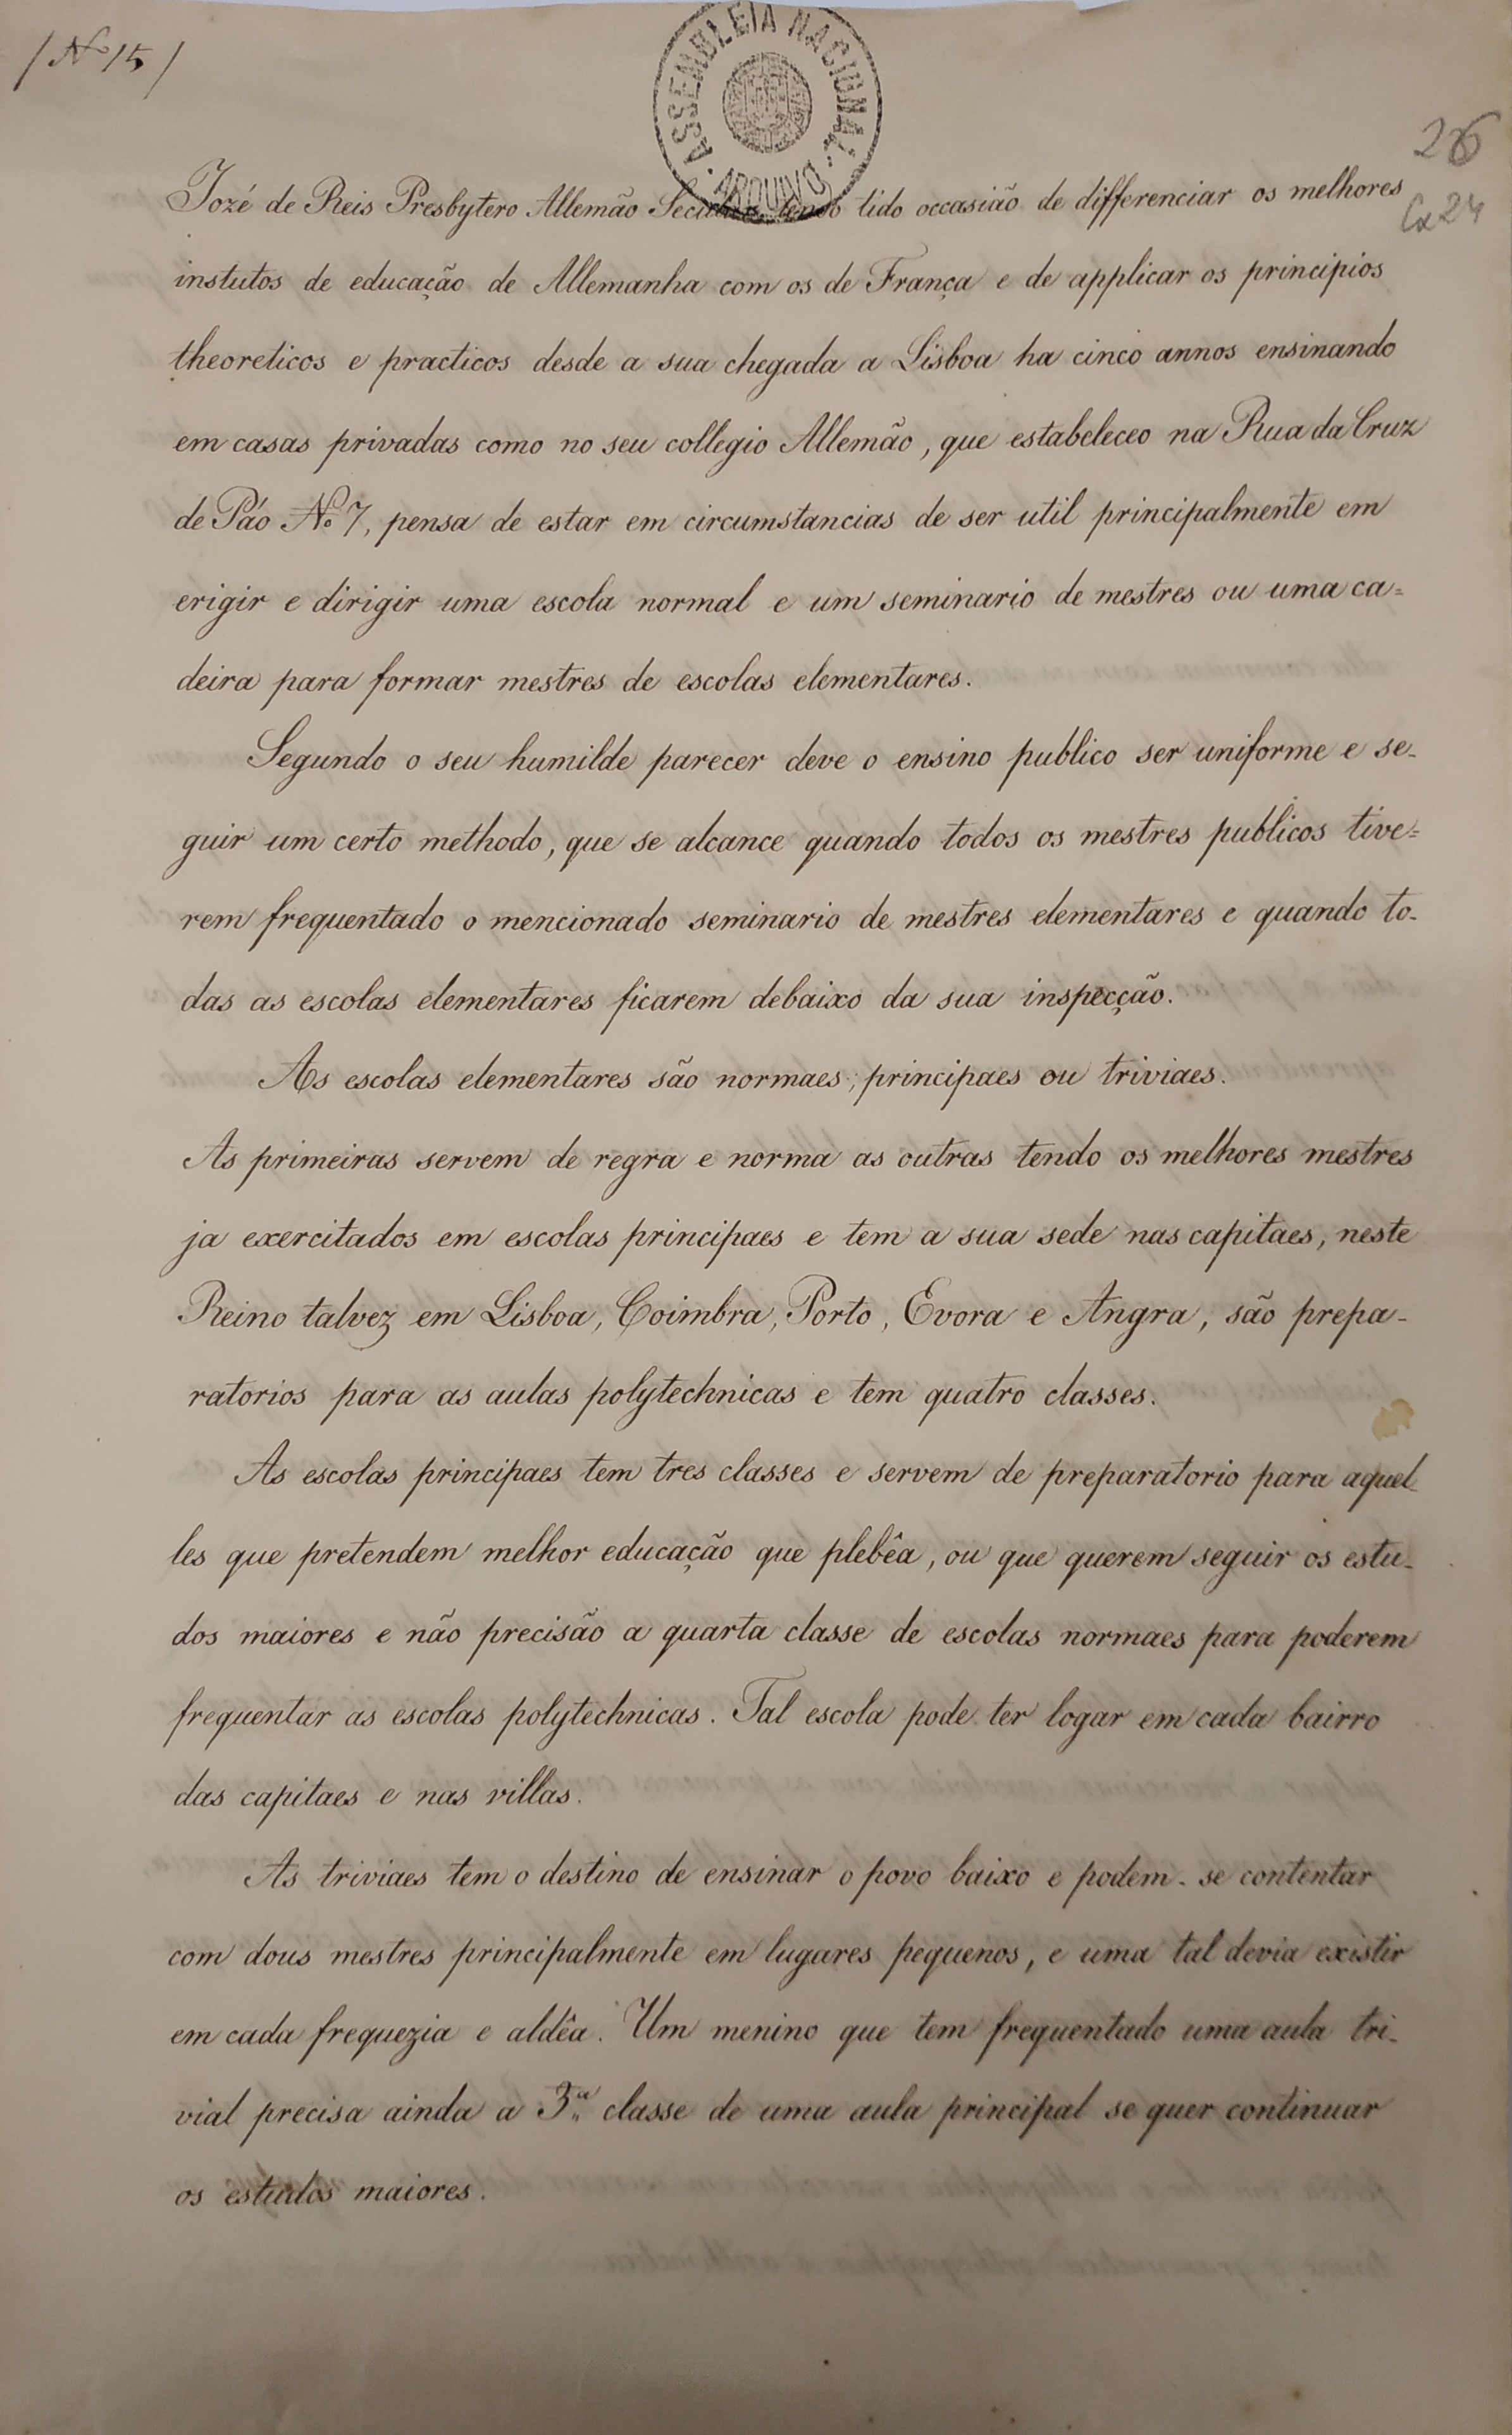 / Nº 15 /
ASSEMBLEIA NACIONAL
ARQUIVO
26
Cx 24
Jozé de Reis Presbytero Allemão Secular, tendo tido occasião de differenciar os melhores
instutos de educação de Allemanha com os de França e de applicar os principios
theoreticos e practicos desde a sua chegada a Lisboa ha cinco annos ensinando
em casas privadas como no seu collegio Allemão, que estabeleceo na Rua da Cruz
de Páo Nº 7, pensa de estar em circumstancias de ser util principalmente em
erigir e dirigir uma escola normal e um seminario de mestres ou uma ca=
deira para formar mestres de escolas elementares.
Segundo o seu humilde parecer deve o ensino publico ser uniforme e se-
guir um certo methodo, que se alcance quando todos os mestres publicos tive=
rem frequentado o mencionado seminario de mestres elementares e quando to-
das as escolas elementares ficarem debaixo da sua inspecção.
As escolas elementares são normaes, principaes ou triviaes.
As primeiras servem de regra e norma as outras tendo os melhores mestres
ja exercitados em escolas principaes e tem a sua sede nas capitaes, neste
Reino talvez em Lisboa, Coimbra, Porto, Evora e Angra, são prepa-
ratorios para as aulas polytechnicas e tem quatro classes.
As escolas principaes tem tres classes e servem de preparatorio para aquel-
les que pretendem melhor educação que plebêa, ou que querem seguir os estu-
dos maiores e não precisão a quarta classe de escolas normaes para poderem
frequentar as escolas polytechnicas. Tal escola pode ter logar em cada bairro
das capitaes e nas villas.
As triviaes tem o destino de ensinar o povo baixo e podem-se contentar
com dous mestres principalmente em lugares pequenos, e uma tal devia existir
em cada frequezia e aldêa. Um menino que tem frequentado uma aula tri-
vial precisa ainda a 3ª classe de uma aula principal se quer continuar
os estudos maiores.